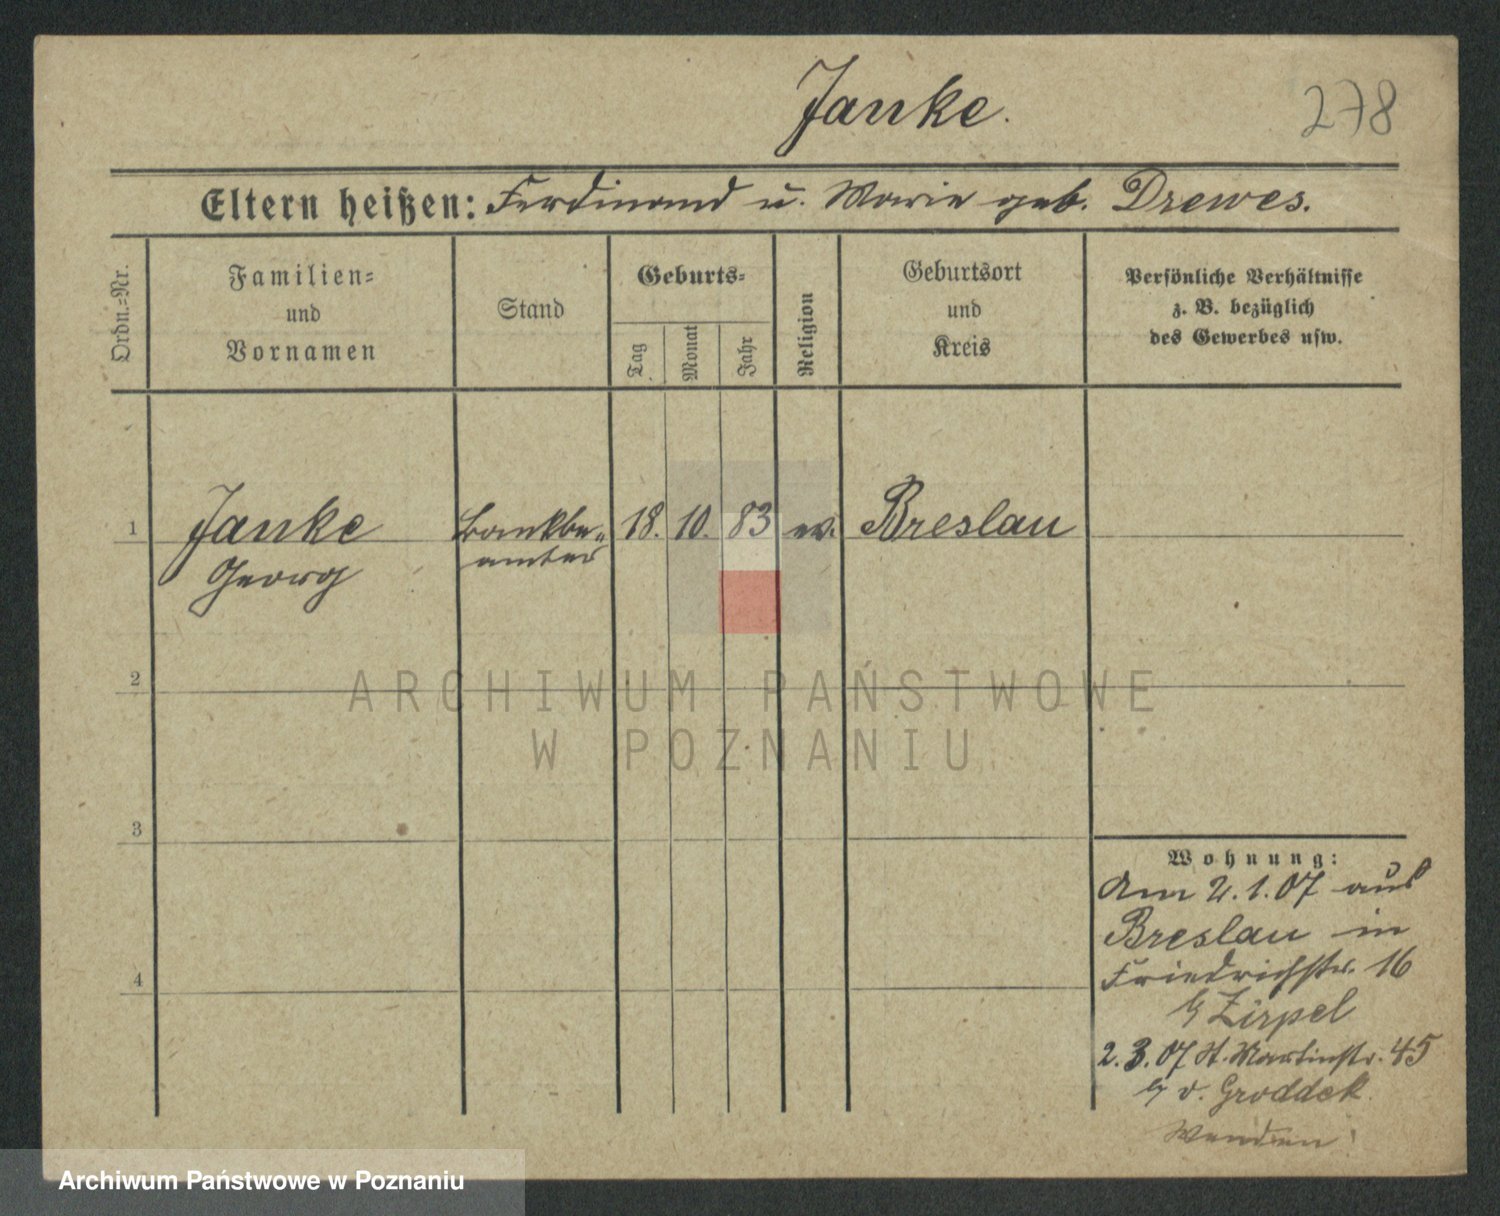 Janke.
278
Eltern heißen: Ferdinand u. Marie geb. Drewes.
Ordn.-Nr.
Familien-
und
Vornamen
Stand
Geburts-
Tag
Monat
Jahr
Religion
Geburtsort
und
Kreis
Persönliche Verhältnisse
z. B. bezüglich
des Gewerbes usw.
1
Janke
Georg
Bankbe-
amter
18. 10. 83 ev. Breslau
2
ARCHIWUM PAŃSTWOWE
W POZNANIU
3
4
Wohnung:
Am 2.1.07 aus
Breslau in
Friedrichstr. 16
b/ Zirpel
2.3.07 St. Martinstr. 45
b/ v. Groddek.
Wenden!
Archiwum Państwowe w Poznaniu